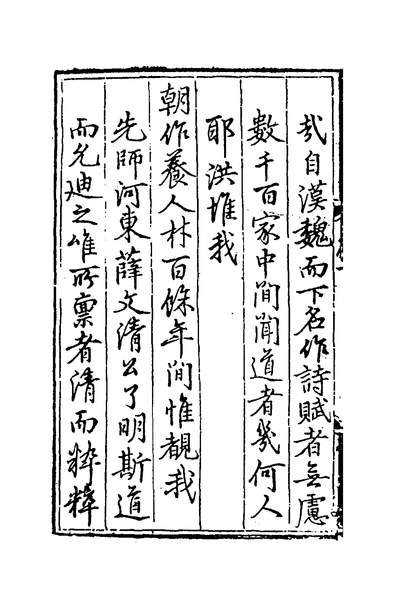 哉自漢魏而下名作詩賦者無慮
數千百家中間聞道者幾何人
耶洪惟我
朝作養人材百餘年間惟覩我
先師河東薛文清公了明斯道
而允迪之雖所稟者清而粹粹